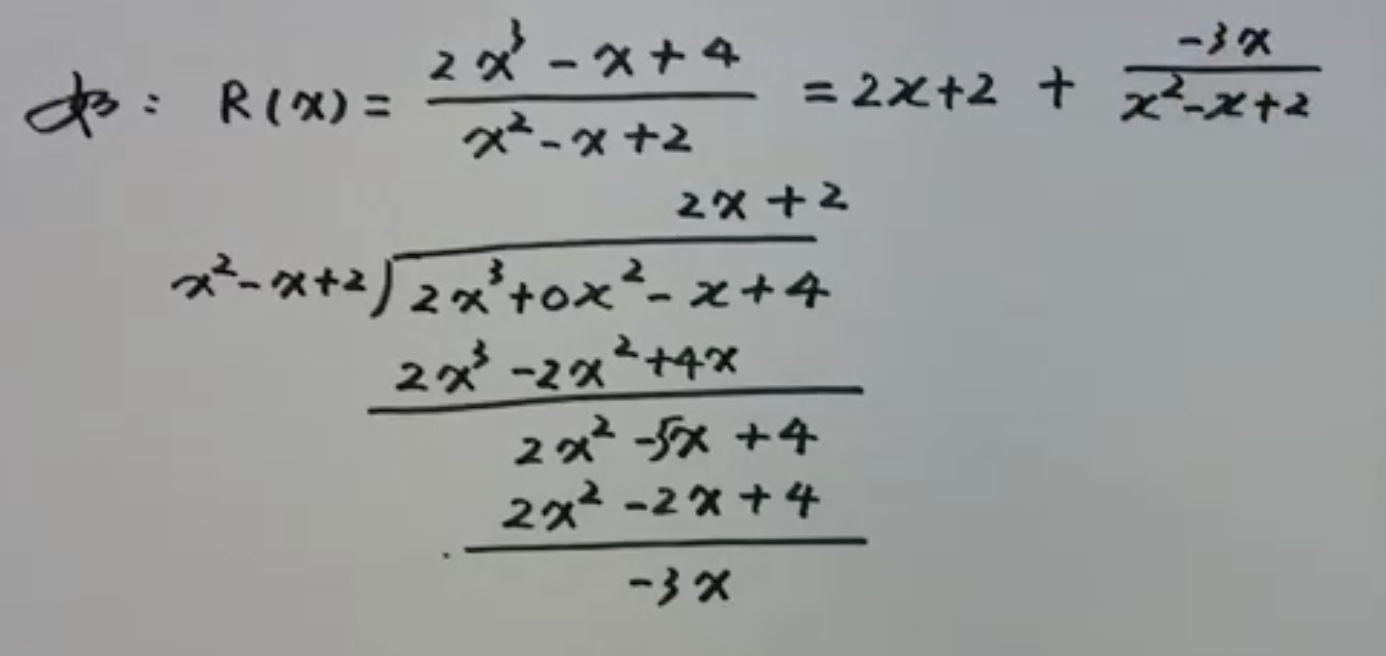 如: R(x) = (2x³ - x + 4)/(x² - x + 2) = 2x+2 + (-3x)/(x²-x+2)
2x + 2
x² - x + 2 ) 2x³ + 0x² - x + 4
2x³ - 2x² + 4x
2x² - 5x + 4
2x² - 2x + 4
-3x